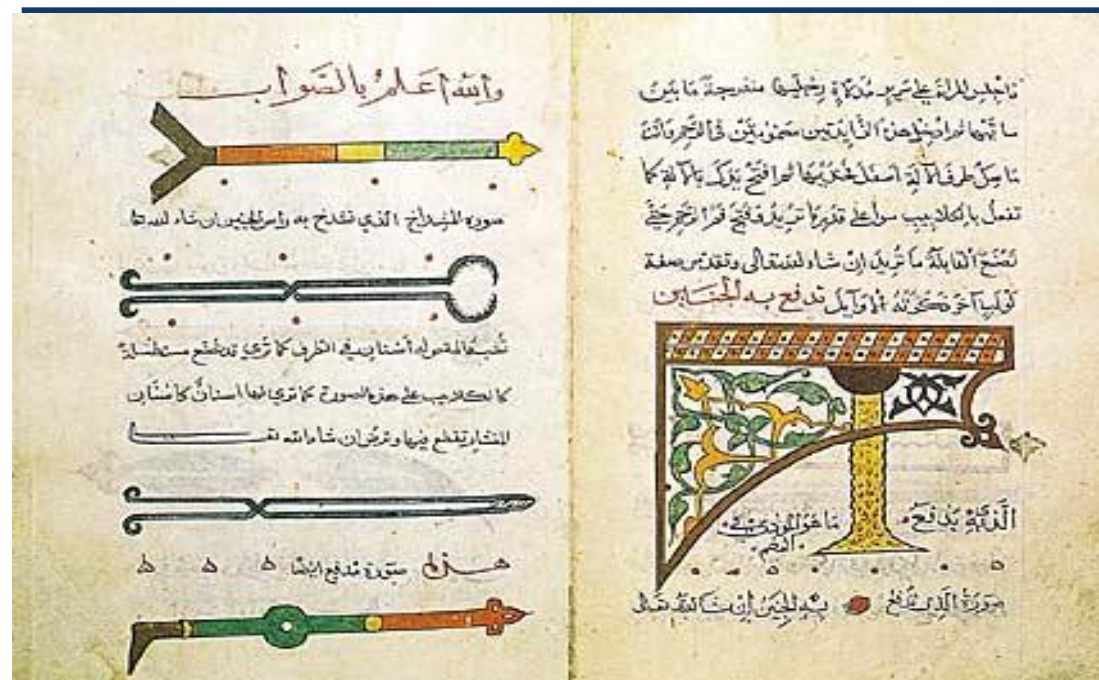 فاجلس المراة على سرير مدلاة رجليها منفرجة ما بين
ساقيها ثم ادخل هذه الزايدتين مضمومتين في الرحم وانت
ماسك طرف الآلة اسفل فخذيها ثم افتح يدك بالآلة كما
تفعل بالكلاليب سوا على قدر ما تريد فتح فم الرحم حتى
تصنع القابلة ما تريد ان شاء الله تعالى
لولب آخر ذكرته الاوايل تدفع به الجنين
الذي يدفع
صورة الذي تدفع به الجنين ان شا الله تعالى
والله اعلم بالصواب
صورة المشداخ الذي تشدخ به راس الجنين ان شاء الله تعا
في الطرف كما ترى قد تصنع مستطيلة
كالكلاليب على هذه الصورة كما ترى لها اسنان كاسنان
المنشار يقطع بها وترض ان شاء الله تعـ
هذه صورة مدفع ايضا ه ه ه